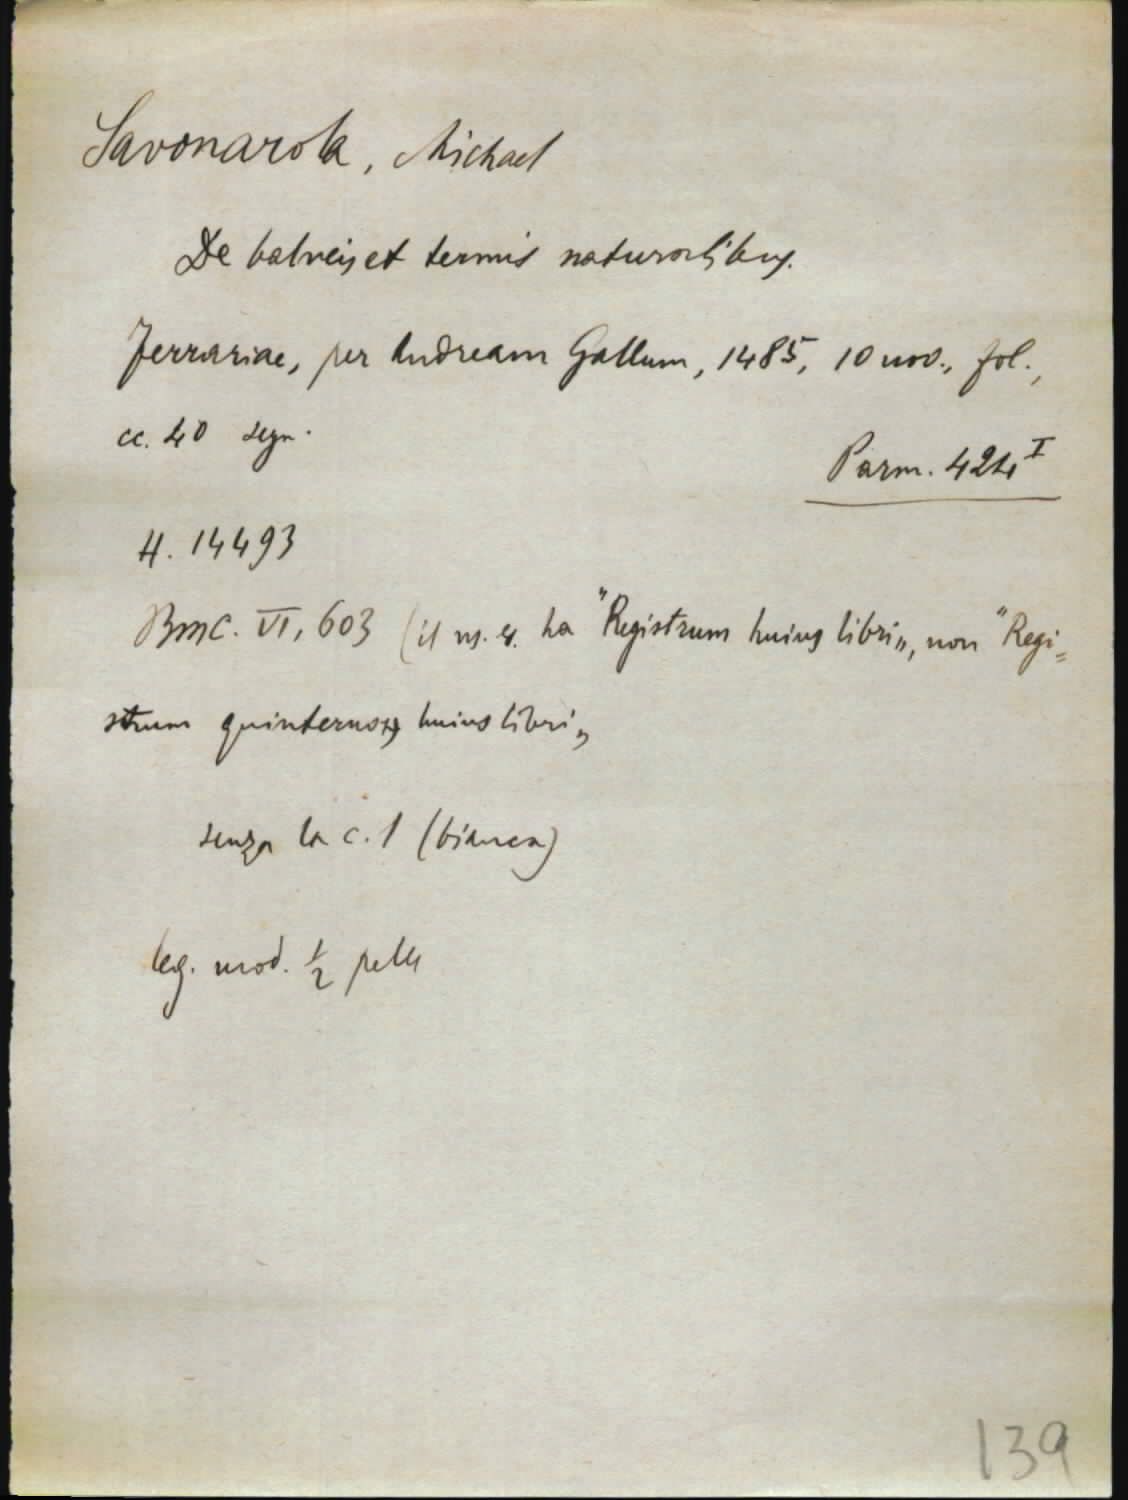 Savonarola, Michael
De balneis et termis naturalibus.
Ferrariae, per Andream Gallum, 1485, 10 nov., fol.,
cc. 40 segn.
Parm. 424 I
H. 14493
BMC. VI, 603 (il ns. es. ha "Registrum huius libri„, non "Regi=
strum quinternoꝝ huius libri„
senza la c. 1 (bianca)
leg. mod. ½ pelle
139